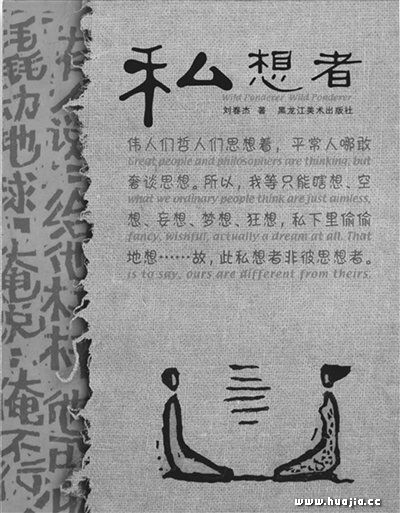 私想者
Wild Ponderer Wild Ponderer
刘春杰 著 黑龙江美术出版社
伟人们哲人们思想着，平常人哪敢
Great people and philosophers are thinking, but
奢谈思想。所以，我等只能瞎想、空
what we ordinary people think are just aimless,
想、妄想、梦想、狂想，私下里偷偷
fancy, wishful, actually a dream at all. That
地想……故，此私想者非彼思想者。
is to say, ours are different from theirs.
地球
俺说
俺不行
www.huajia.cc